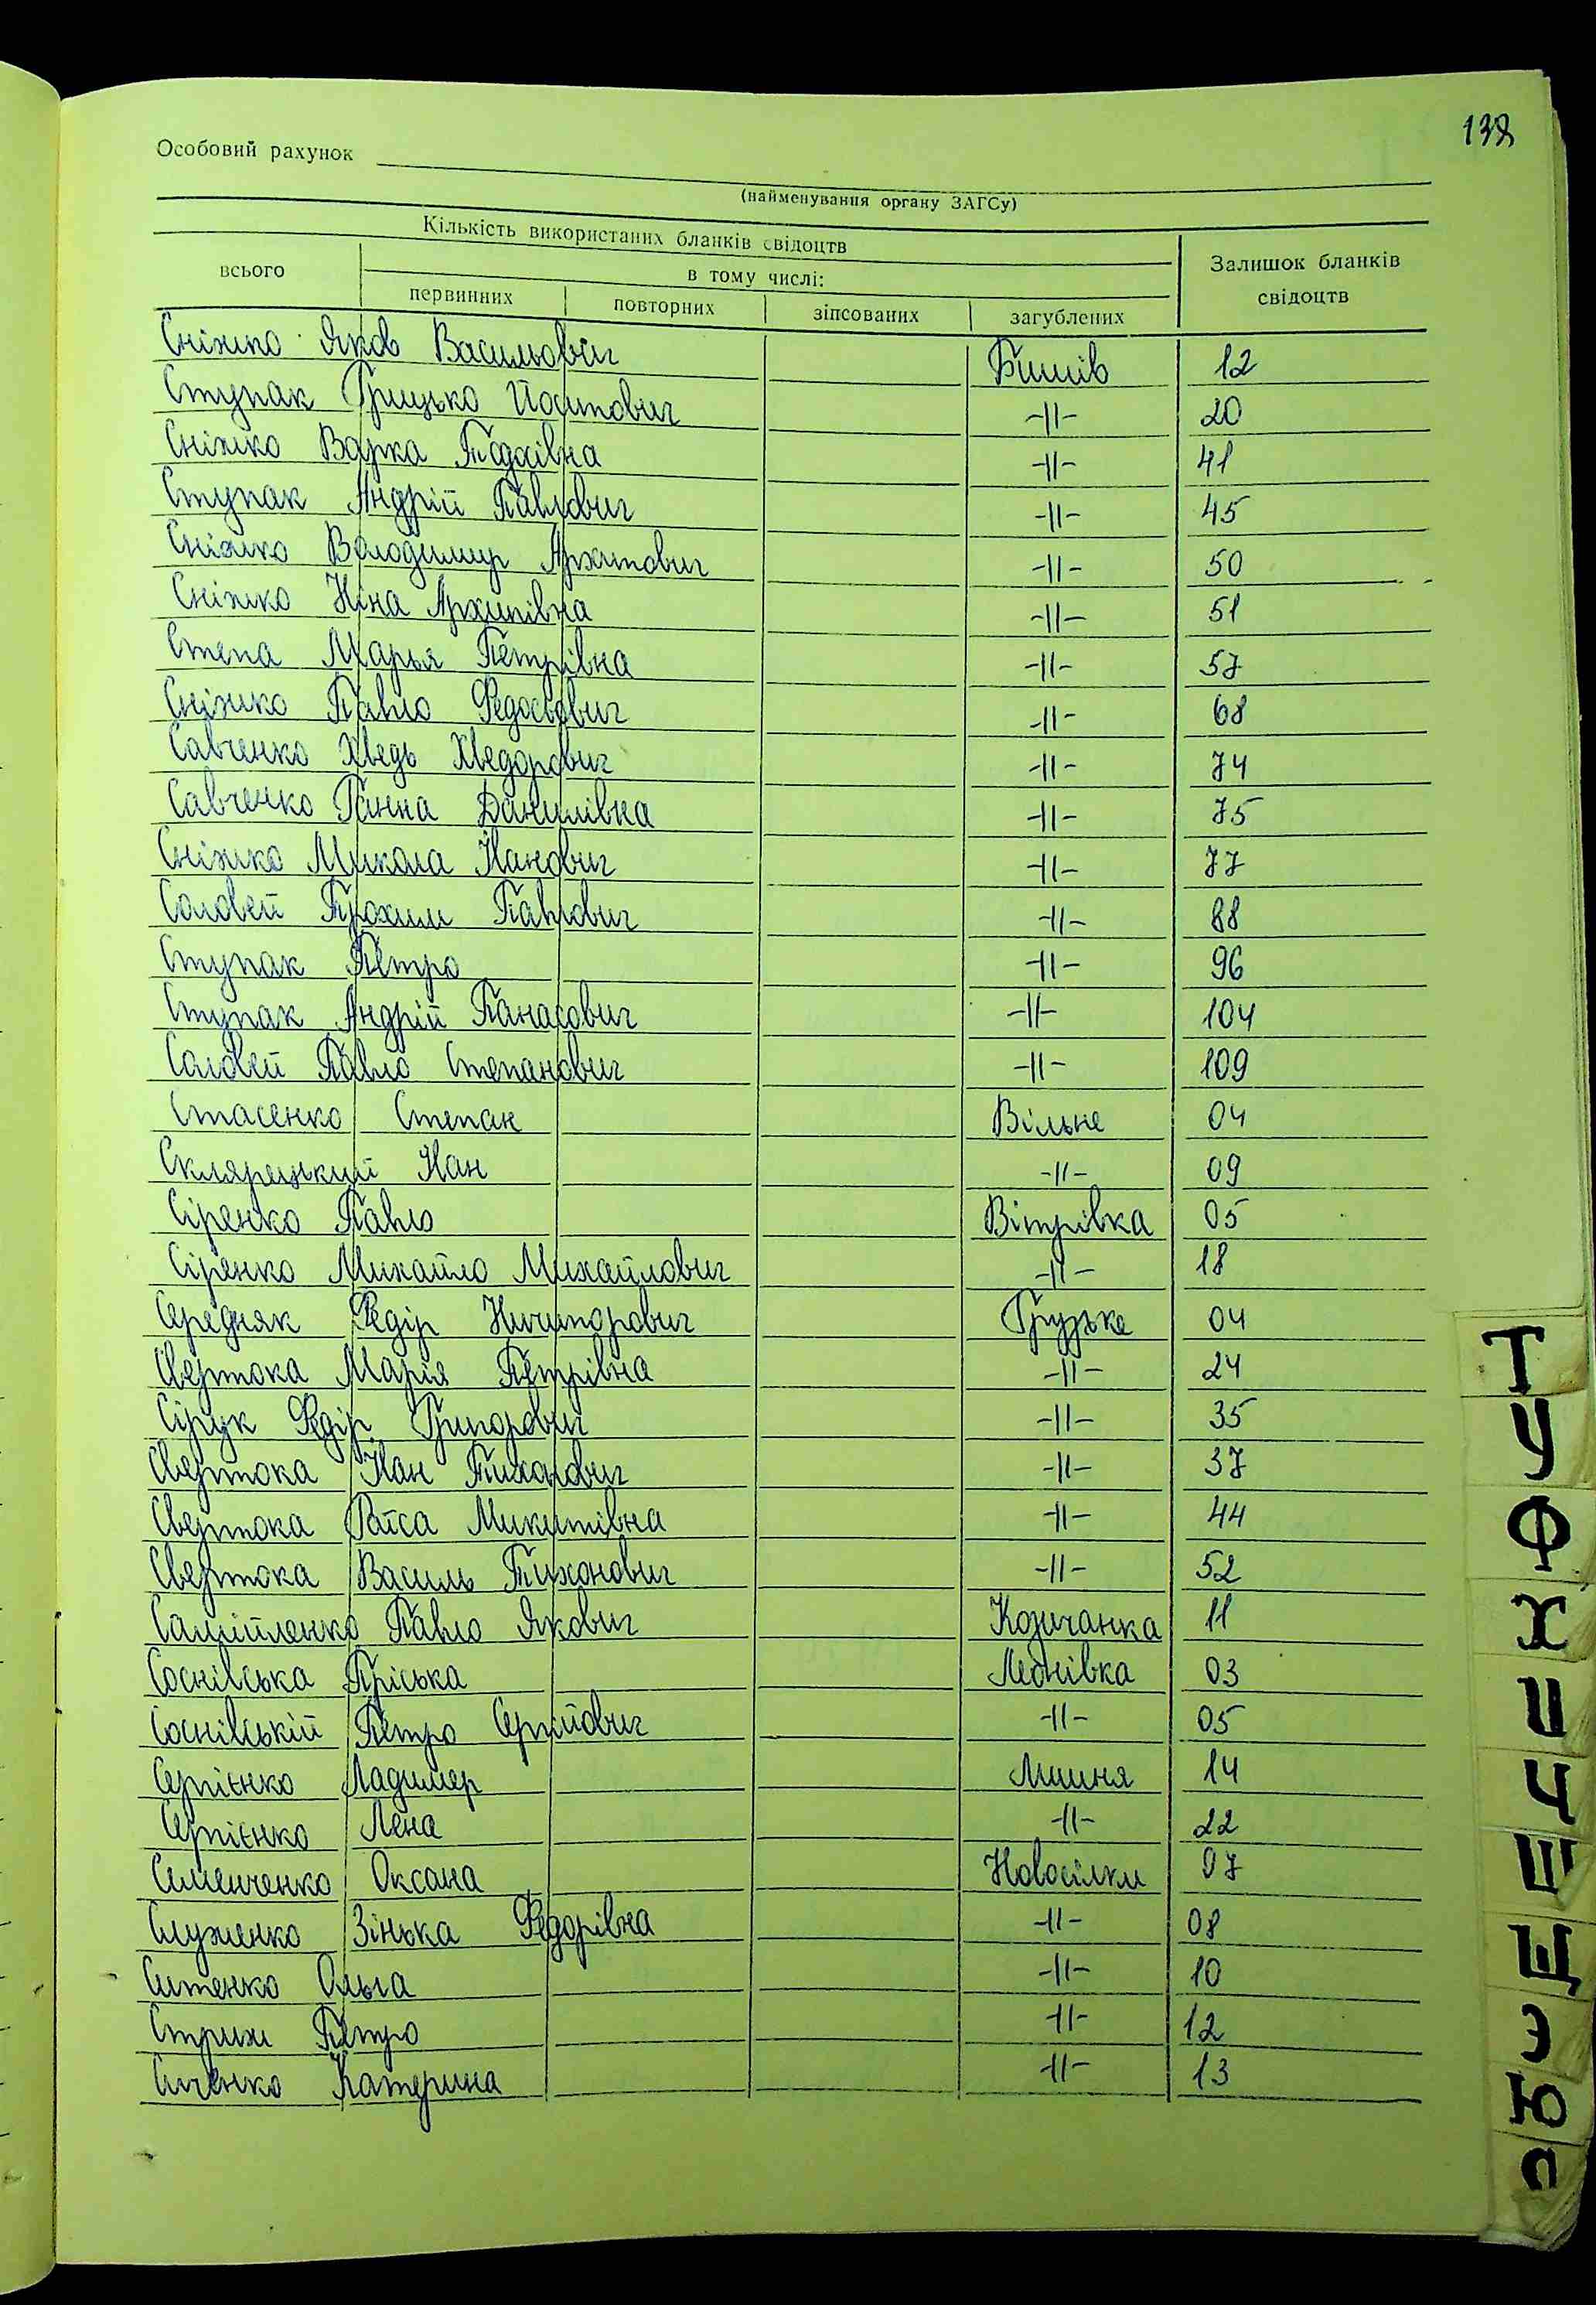 138
Особовий рахунок
(найменування органу ЗАГСу)
Кількість використаних бланків свідоцтв
всього
в тому числі:
первинних повторних зіпсованих загублених
Залишок бланків свідоцтв
Сніжко Яков Васильович Бишів 12
Ступак Грицько Йосипович -||- 20
Сніжко Варка -||- 41
Ступак Андрій Павлович -||- 45
Сніжко Володимир Архипович -||- 50
Сніжко Ніна Архипівна -||- 51
Степа Марья Петрівна -||- 57
Сніжко Павло Федосьович -||- 68
Савченко Хведь Хведорович -||- 74
Савченко Ганна Данилівна -||- 75
Сніжко Микола Іванович -||- 77
Соловей Трохим Павлович -||- 88
Ступак Петро -||- 96
Ступак Андрій Панасович -||- 104
Соловей Павло Степанович -||- 109
Стасенко Степан Вільне 04
Іван -||- 09
Сіренко Павло Вітрівка 05
Сіренко Микайло Михайлович -||- 18
Середняк Федір Ничипорович Грузьке 04
Свертока Марія Петрівна -||- 24
Сірук Федір Григорович -||- 35
Свертока Іван Тихонович -||- 37
Свертока Раїса Микитівна -||- 44
Свертока Василь Тихонович -||- 52
Самійленко Павло Якович Козичанка 11
Соснівська Пріська Леонівка 03
Соснівський Петро Сергійович -||- 05
Сергієнко Ладимер Лишня 14
Сергієнко Лена -||- 22
Семенченко Оксана Новосілки 07
Служенко Зінька Федорівна -||- 08
Ольга -||- 10
Стриж Петро -||- 12
Катерина -||- 13
Т
У
Ф
Х
Ц
Ч
Ш
Щ
Э
Ю